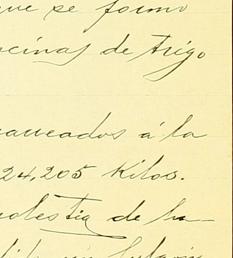 que se formó
ocinas de trigo
aneados á la
24,205 Kilos.
olestia de ha-